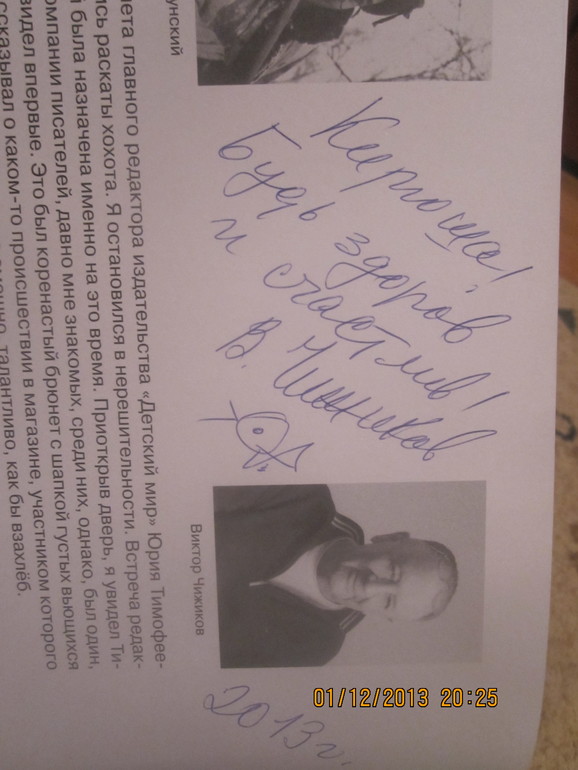 Кирюше!
Будь здоров
и счастлив!
В. Чижиков
2013 г.
01/12/2013 20:25
унский
Виктор Чижиков
нета главного редактора издательства «Детский мир» Юрия Тимофее-
ись раскаты хохота. Я остановился в нерешительности. Встреча редак-
й была назначена именно на это время. Приоткрыв дверь, я увидел Ти-
омпании писателей, давно мне знакомых, среди них, однако, был один,
видел впервые. Это был коренастый брюнет с шапкой густых вьющихся
ссказывал о каком-то происшествии в магазине, участником которого
талантливо, как бы взахлёб.